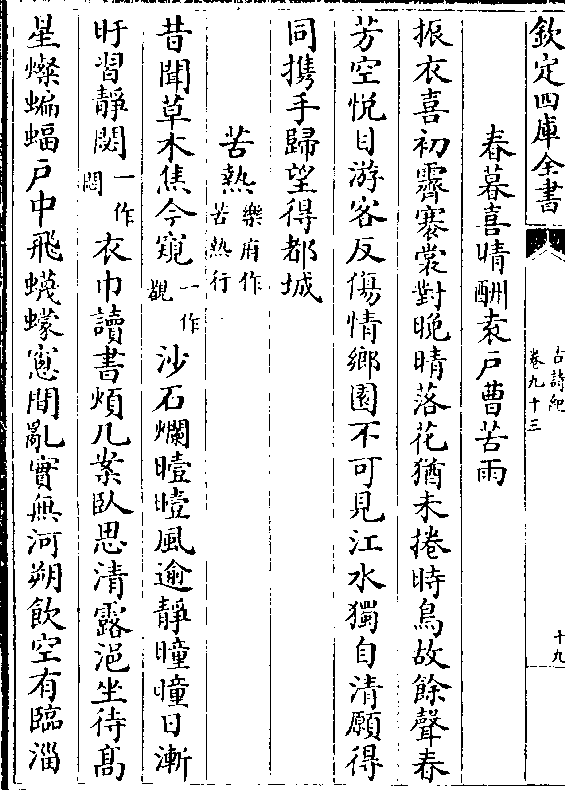 欽定四庫全書
古詩紀
卷九十三
十九
春暮喜晴酬袁戶曹苦雨
振衣喜初霽褰裳對晚晴落花猶未捲時鳥故餘聲春
芳空悅目游客反傷情鄉園不可見江水獨自清願得
同携手歸望得都城
苦熱樂府作苦熱行
昔聞草木焦今窺一作覩沙石爛曀曀風逾靜曈曈日漸
旰習靜閟一作悶衣巾讀書煩几案臥思清露浥坐待髙
星燦蝙蝠戶中飛蠛蠓窻間亂實無河朔飲空有臨淄